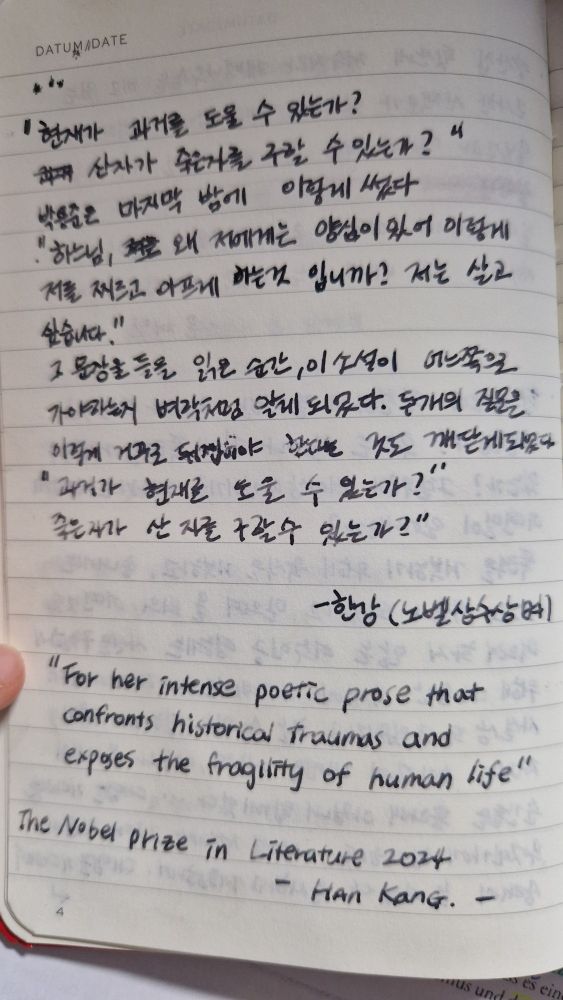 DATUM//DATE
"현재가 과거를 도울 수 있는가?
산자가 죽은자를 구할 수 있는가?"
박용준은 마지막 밤에 이렇게 썼다
."하느님, 왜 저에게는 양심이 있어 이렇게
저를 찌르고 아프게 하는것 입니까? 저는 살고
싶습니다."
그 문장들을 읽은 순간, 이 소설이 어느쪽으로
가야하는지 벼락처럼 알게 되었다. 두개의 질문을
이렇게 거꾸로 뒤집어야 한다는 것도 깨닫게되었다
"과거가 현재를 도울 수 있는가?"
죽은자가 산 자를 구할수 있는가?"
-한강 (노벨상수상
"For her intense poetic prose that
confronts historical Traumas and
exposes the fragility of human life"
The Nobel prize in Literature 2024
- HAN KANG. -
4
mus und
ss es ein